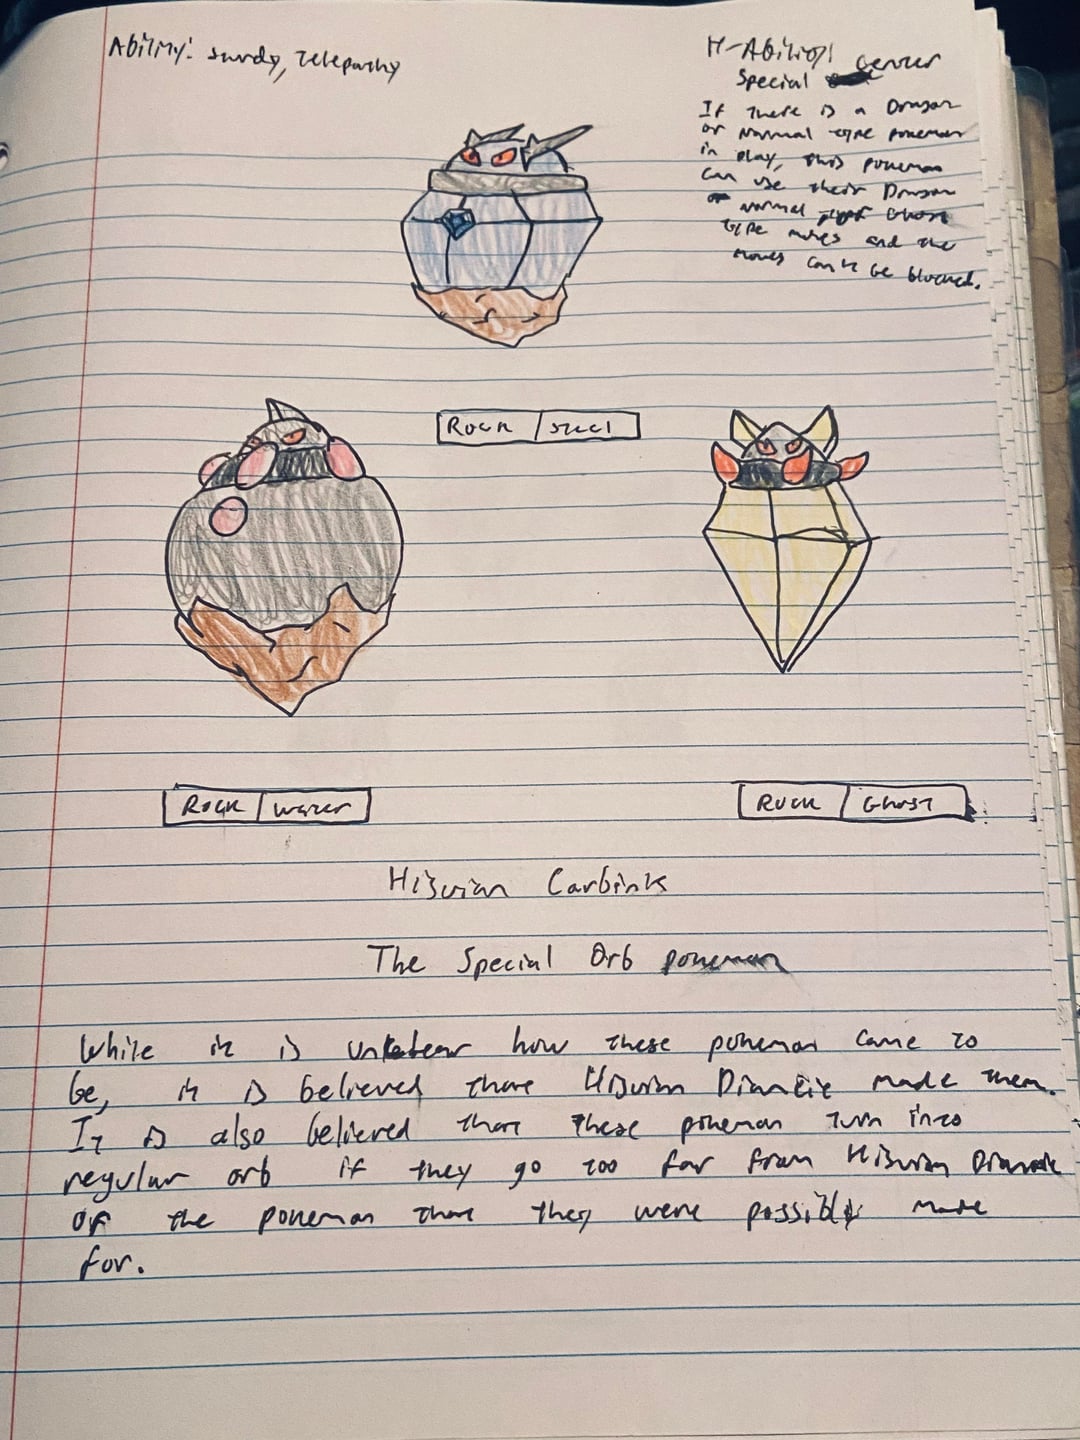 Ability: Sturdy, Telepathy
H-Ability:
Special
If there is a Dragon
or Normal type pokemon
in play, this pokemon
can use their Dragon
or normal Ghost
type moves and the
moves can't be blocked.
Rock Steel
Rock Water
Rock Ghost
Hisuian Carbink
The Special Orb pokemon
While it is unclear how these pokemon came to
be, it is believed that Hisuian Diancie made them.
It is also believed that these pokemon turn into
regular orb if they go too far from Hisuian Diancie
or the pokemon that they were possibly made
for.